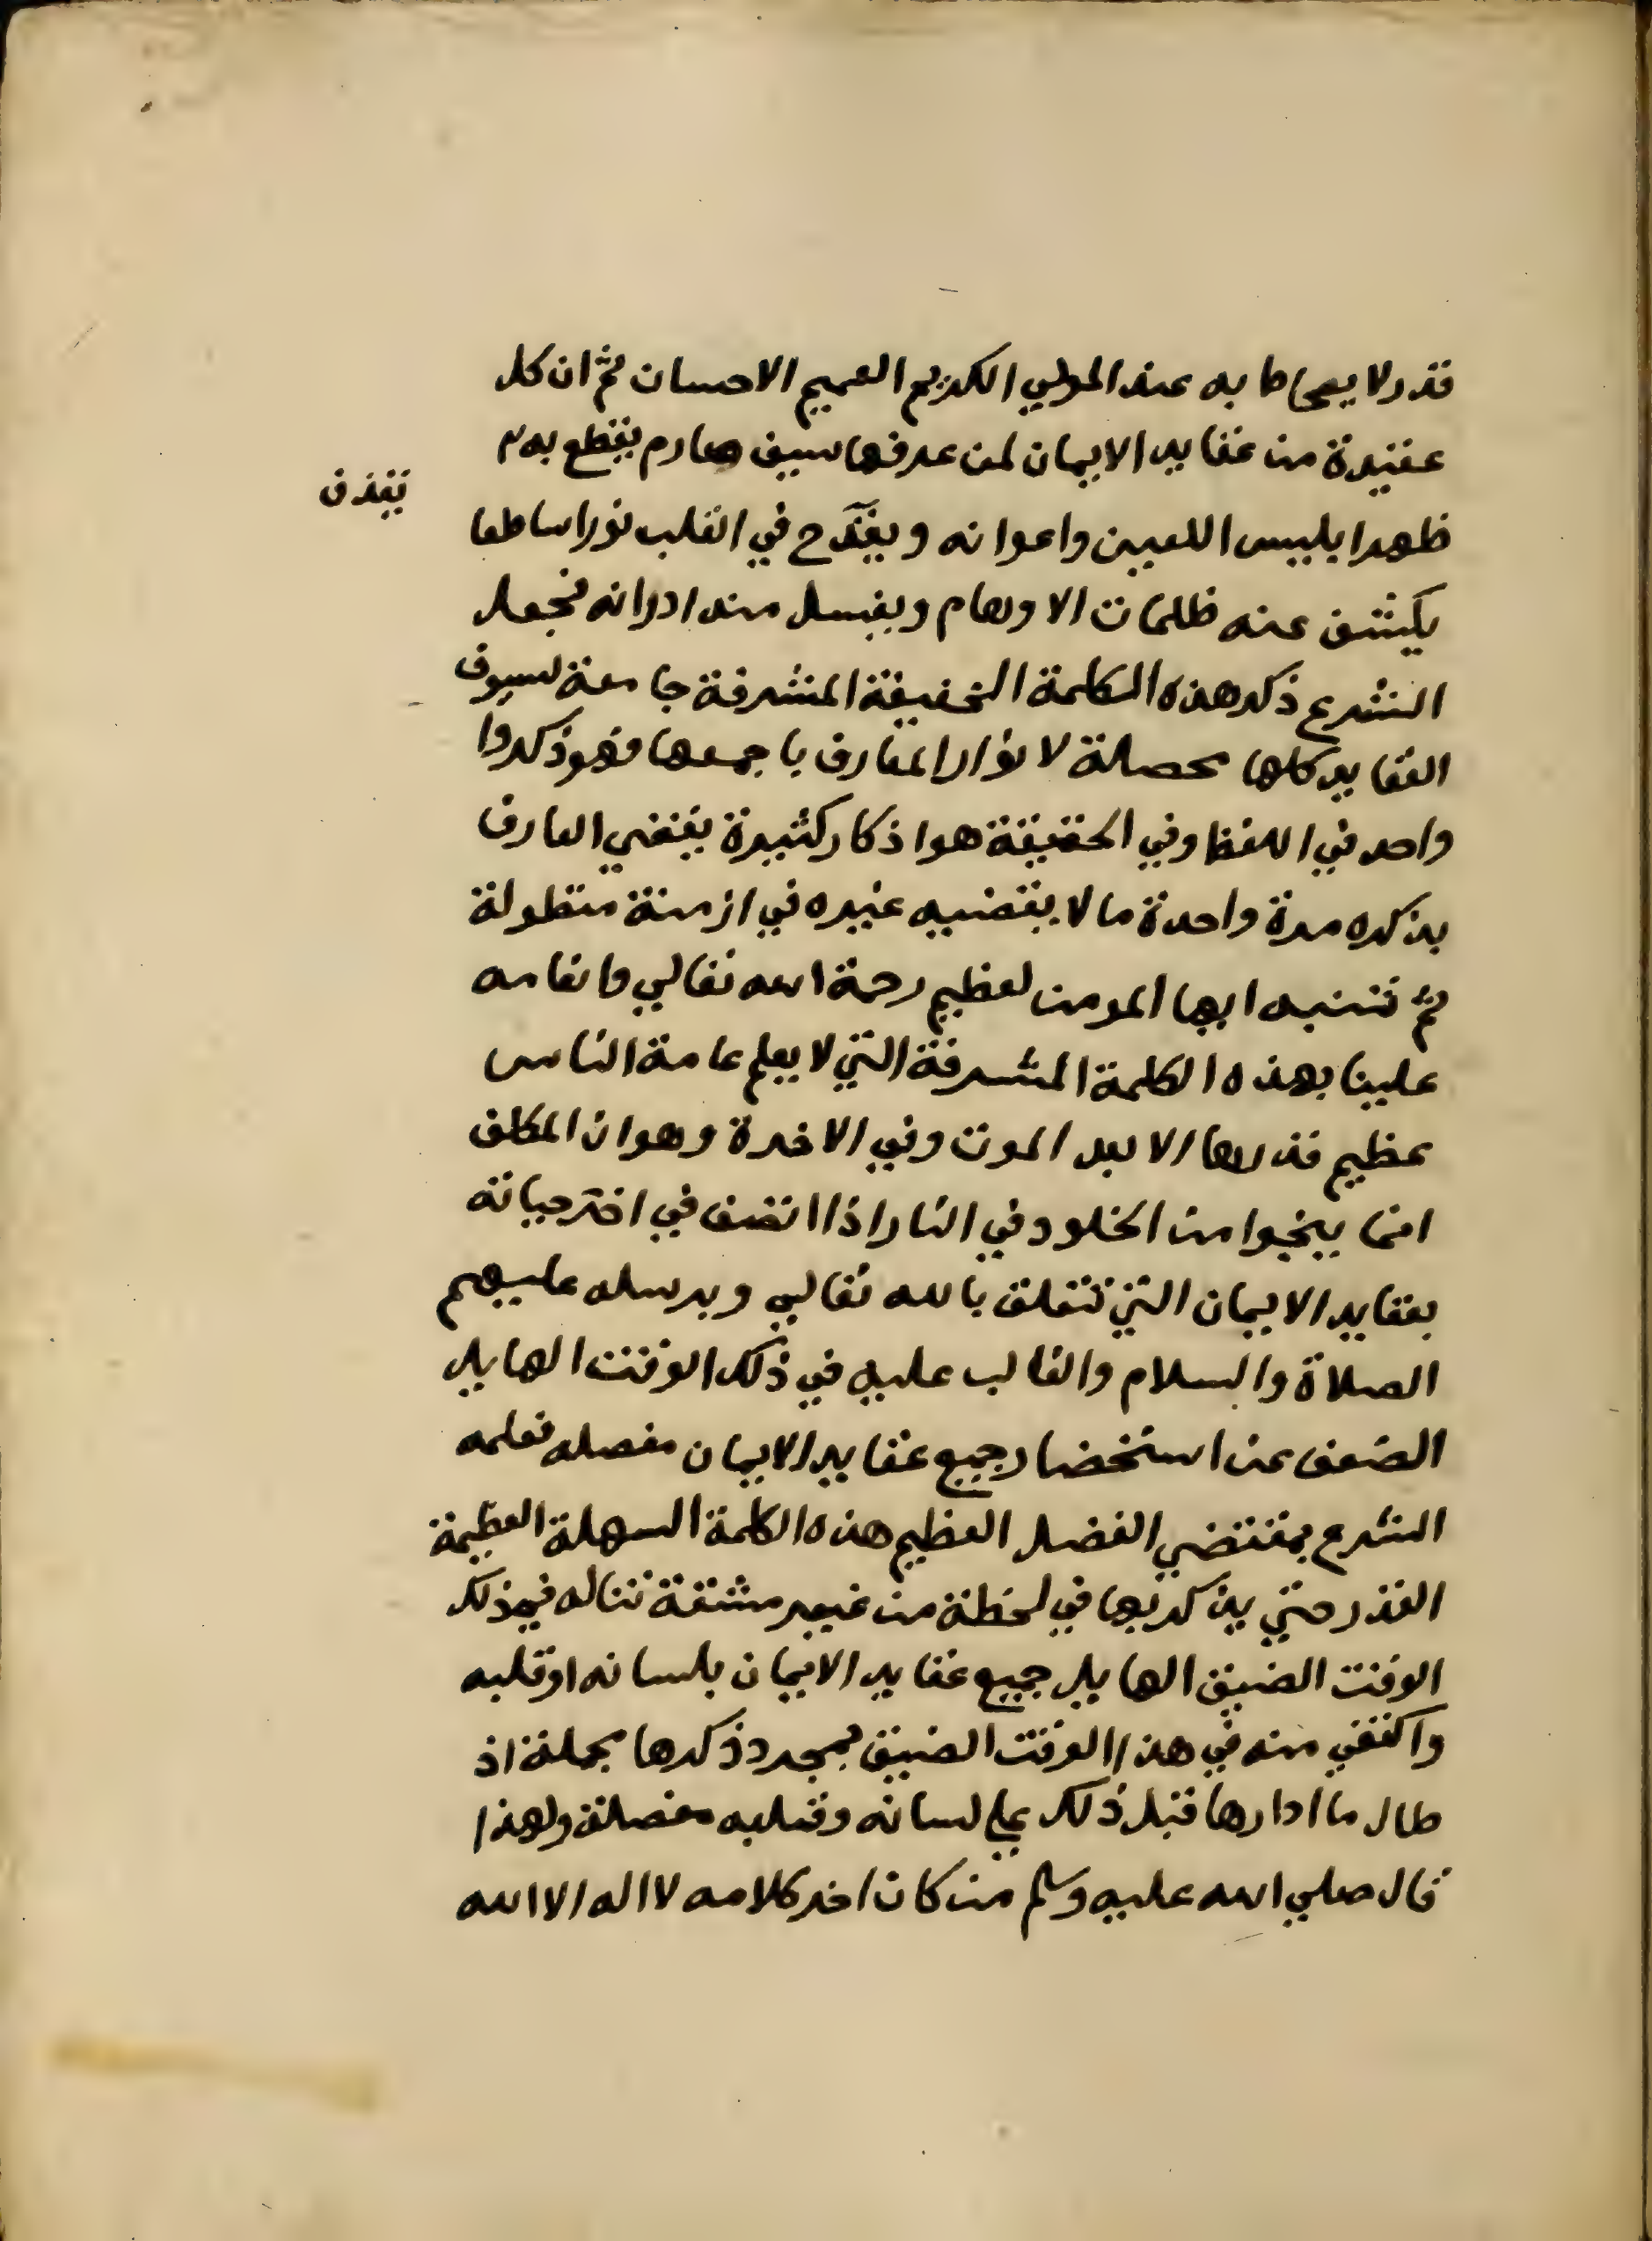 قدر لا يحاط به عند المولي الكريم العميم الاحسان ثم ان كل
عقيدة من عقايد الايمان لمن عرفها سيف صارم يقطع به
ظهر ابليس اللعين واعوانه ويقدح في القلب نورا ساطعا
يكشف عنه ظلمات الاوهام ويغسل منه ادرانه فجعل
الشرع ذكر هذه الكلمة الخفيفة المشرفة جامعة لسيوف
العقايد كلها محصلة لانوار المعارف باجمعها فهو ذكر وا
واحد في اللفظ وفي الحقيقة هو اذكار كثيرة يقتضي العارف
بذكره مرة واحدة ما لا يقتضيه غيره في ازمنة متطولة
ثم تنبه ايها المومن لعظيم رحمة الله تعالي وانعامه
علينا بهذه الكلمة المشرفة التي لا يعلم عامة الناس
عظيم قدرها الا بعد الموت وفي الاخرة وهو ان المكلف
انما ينجوا من الخلود في النار اذا اتصف في اخر حياته
بعقايد الايمان التي تتعلق بالله تعالي وبرسله عليهم
الصلاة والسلام والغالب عليه في ذلك الوقت الهايل
الضعف عن استحضار جميع عقايد الايمان مفصله فعلمه
الشرع بمقتضي الفضل العظيم هذه الكلمة السهلة العظيمة
القدر حتي يذكر بها في لحظة من غير مشقة تناله في ذلك
الوقت الضيق الهايل جميع عقايد الايمان بلسانه او قلبه
واكتفي منه في هذا الوقت الضيق بمجرد ذكرها مجملة اذ
طال ما ادارها قبل ذلك علي لسانه وقلبه مفصلة ولهذا
قال صلي الله عليه وسلم من كان اخر كلامه لا اله الا الله